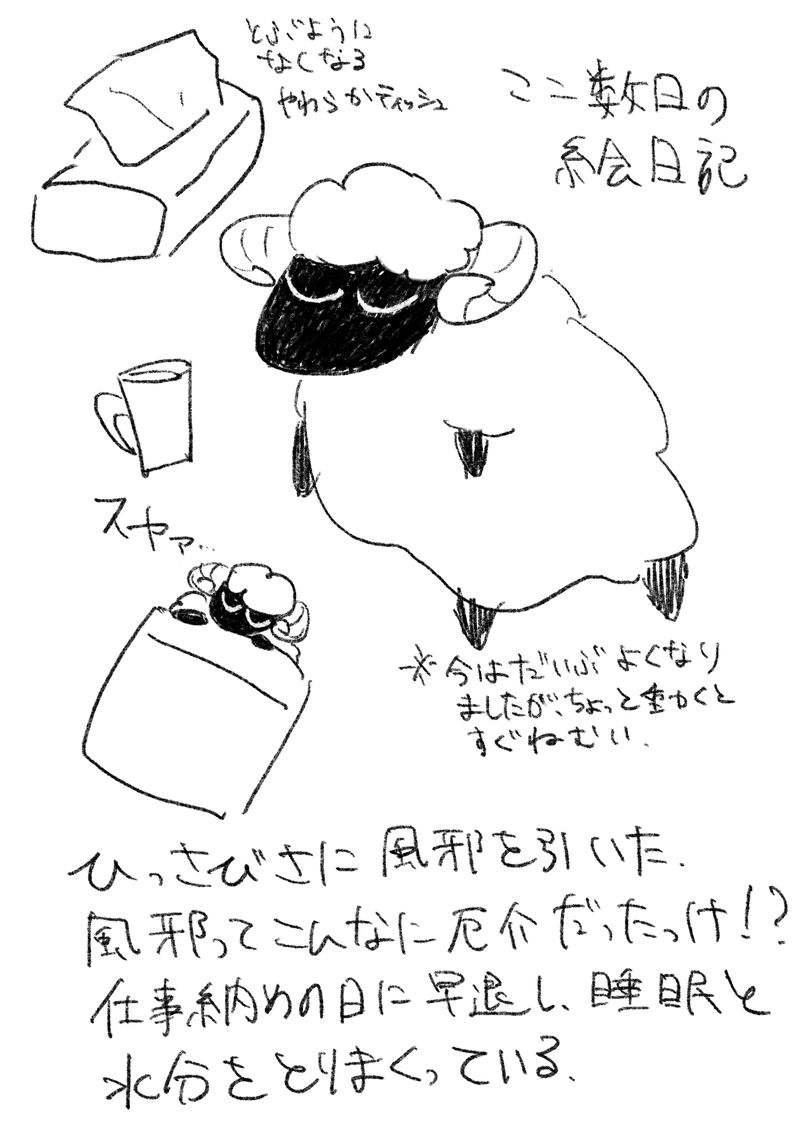 ここ数日の
絵日記
とぶように
なくなる
やわらかティッシュ
スヤァ…
※今はだいぶよくなり
ましたが、ちょっと動くと
すぐねむい.
ひっさびさに風邪を引いた.
風邪ってこんなに厄介だったっけ!?
仕事納めの日に早退し、睡眠と
水分をとりまくっている.